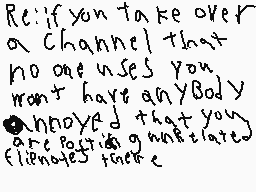 Re:if you take over
a channel that
no one uses you
wont have anyBody
annoyed that you
are posting unrelated
flipnotes there